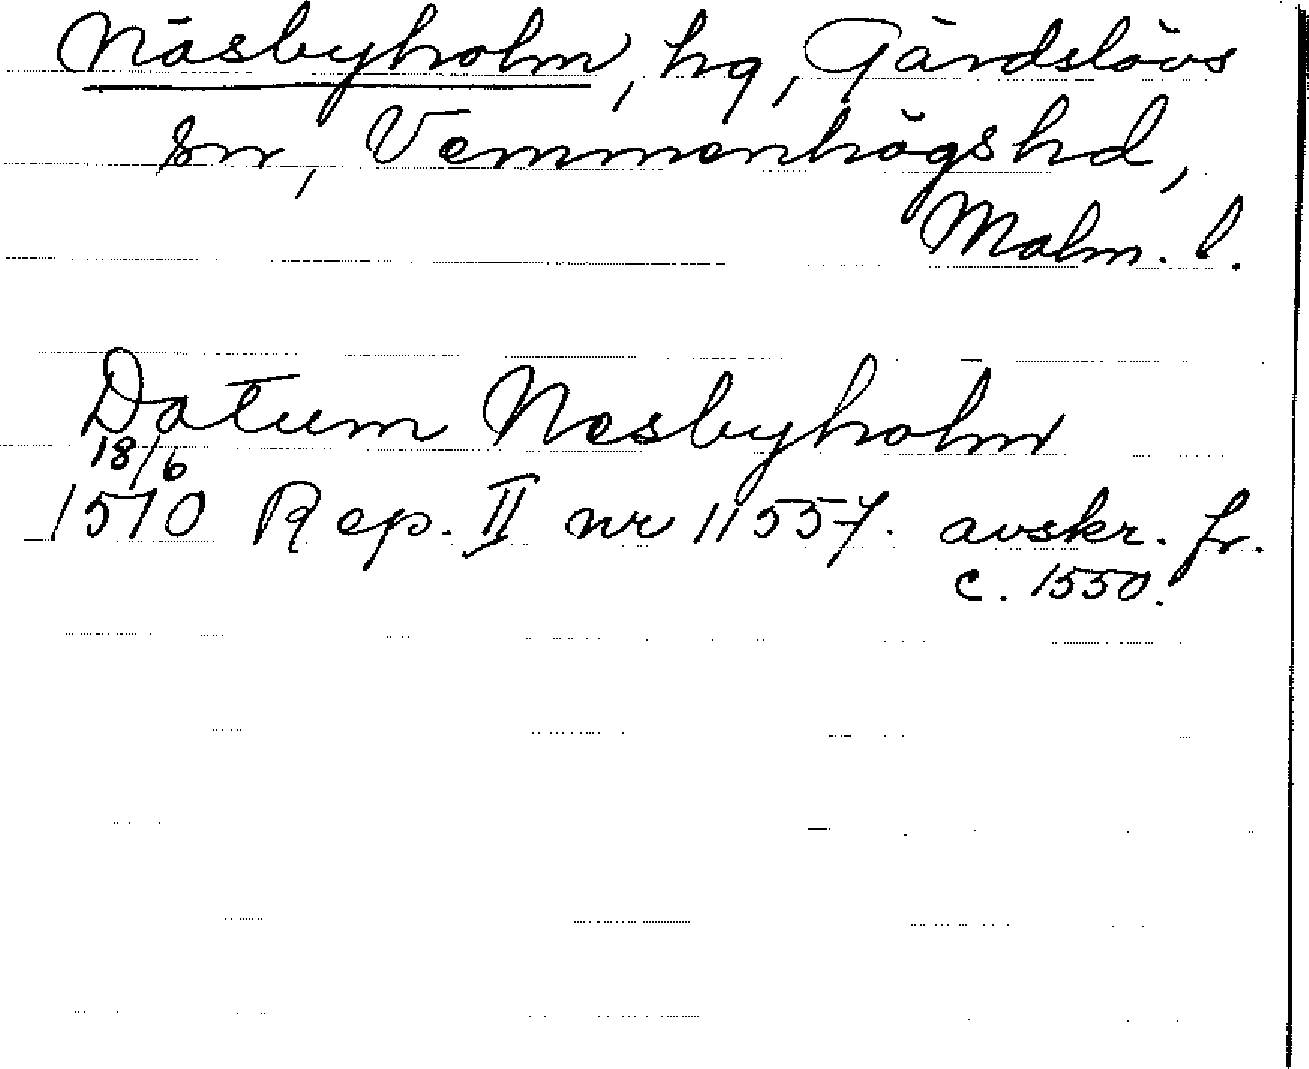 Näsbyholm, hg, Gärdslövs
sn, Vemmenhögs hd,
Malm. l.
Datum Nesbyholm
18/6
1510 Rep. II nr 11557. avskr. fr.
c. 1550.